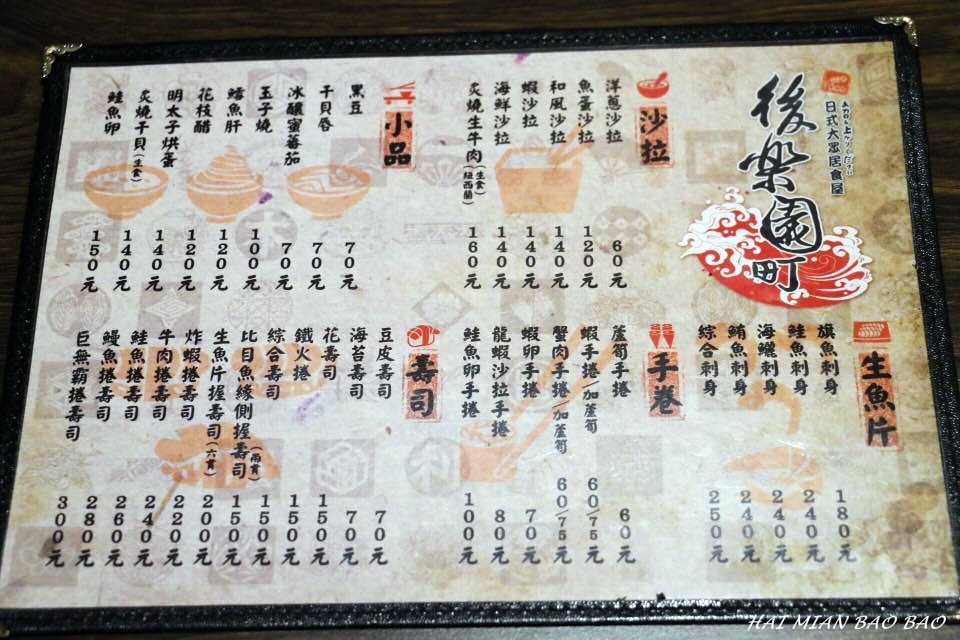 後樂園町
日式大眾居食屋
沙拉
洋蔥沙拉 60元
魚蛋沙拉 120元
和風沙拉 140元
蝦沙拉 140元
海鮮沙拉 140元
炙燒生牛肉(生食)(紐西蘭) 160元
小品
黑豆 70元
干貝唇 70元
冰釀蜜蕃茄 70元
玉子燒 100元
鱈魚肝 120元
花枝醋 120元
明太子烘蛋 140元
炙燒干貝(生食) 140元
鮭魚卵 150元
生魚片
旗魚刺身 180元
鮭魚刺身 240元
海鱺刺身 240元
鮪魚刺身 240元
綜合刺身 250元
手卷
蘆筍手捲 60元
蝦手捲/加蘆筍 60/75元
蟹肉手捲/加蘆筍 60/75元
蝦卵手捲 70元
龍蝦沙拉手捲 80元
鮭魚卵手捲 100元
壽司
豆皮壽司 70元
海苔壽司 70元
花壽司 150元
鐵火捲 150元
綜合壽司 150元
比目魚緣側握壽司(兩貫) 150元
生魚片握壽司(六貫) 200元
炸蝦捲壽司 220元
牛肉捲壽司 240元
鮭魚捲壽司 260元
鰻魚捲壽司 280元
巨無霸捲壽司 300元
HAI MIAN BAO BAO